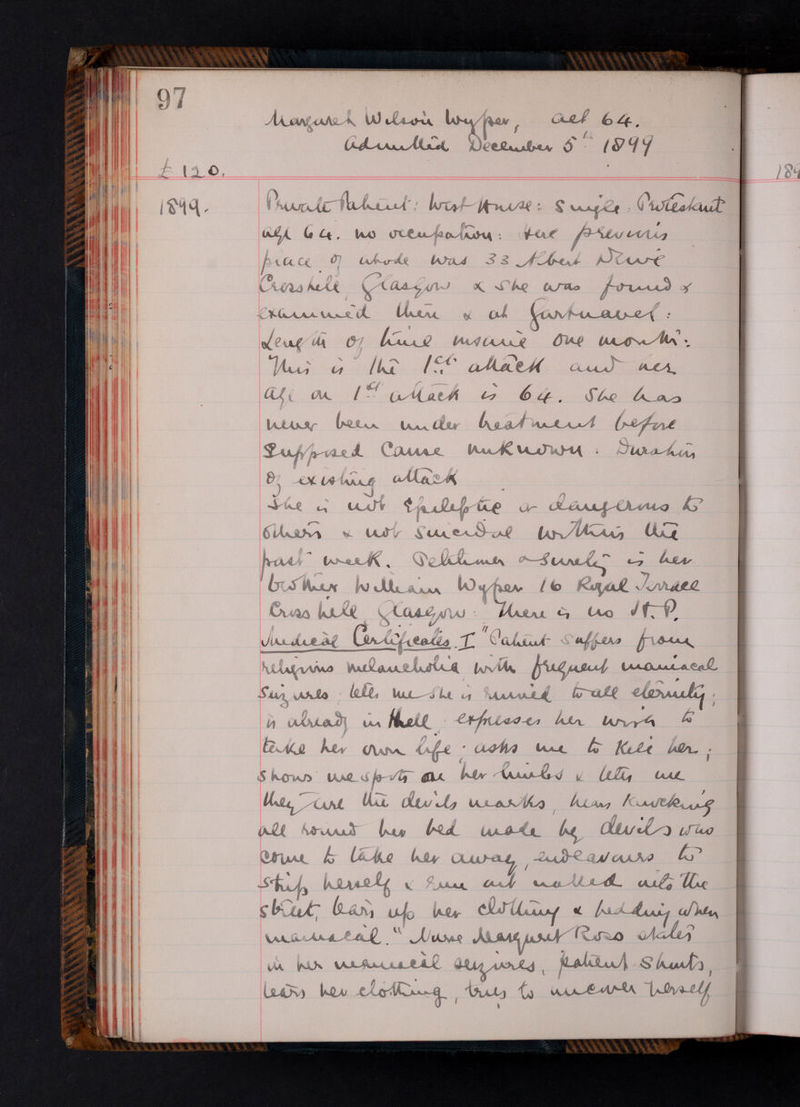 97
Margaret Wilson Wyper, aet 64.
Admitted December 5th 1899
£120.
189
1899. Private Patient: West House: Single Protestant
age 64. no occupation: the previous
place of abode was 33 Albert Drive
Crosshill Glasgow & She was found &
examined there & at Gartnavel:
length of time insane One month:
This is the 1st attack and her
age on 1st attack is 64. She has
never been under treatment before
Supposed Cause unknown. Duration
of existing attack
She is not Epileptic or dangerous to
Others & not Suicidal within the
past week. Petitioner is her
brother William Wyper 16 Royal Terrace
Cross hill, Glasgow. There is no J.P.
Medical Certificates I "Patient Suffers from
religious melancholia with frequent maniacal
tells me She is ruined to all eternity:
is already in Hell expresses her wish to
take her own life: asks me to Kill her;
Shows me spots on her hands & tells me
they are the devils marks, hears knocking
all round her bed made by devils who
come to take her away, endeavours to
Strip herself & run out naked into the
Street, tears up her clothing & bedding when
maniacal." Nurse Margaret Ross states
in her maniacal seizures, patient Shouts,
tears her clothing, tries to uncover herself